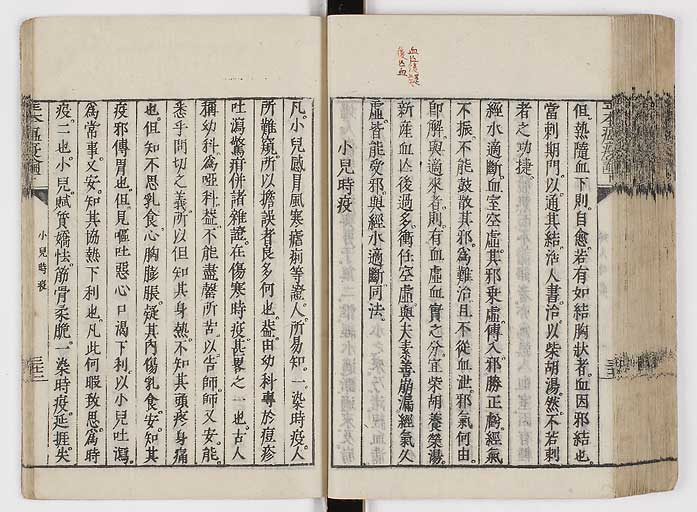 但熱隨血下則自愈若有如結胸狀者血因邪結也
當刺期門以通其結活人書治以柴胡湯然不若刺
者之功捷
經水適斷血室空虛其邪乘虛傳入邪勝正虧經氣
不振不能鼓散其邪為難治且不從血泄邪氣何由
即解與適來者則有血虛血實之分宜柴胡養榮湯
新產亡血過多衝任空虛與夫素善崩漏經氣久
虛皆能受邪與經水適斷同法
小兒時疫
凡小兒感冒風寒瘧痢等證人所易知一染時疫人
所難窺所以擔誤者良多何也葢由幼科專於痘疹
吐瀉驚疳併諸雜證在傷寒時疫甚畧之一也古人
稱幼科為啞科葢不能盡罄所苦以告師師又安能
悉乎問切之義所以但知其身熱不知其頭疼身痛
也但知不思乳食心胸膨脹疑其內傷乳食安知其
疫邪傳胃也但見嘔吐惡心口渴下利以小兒吐瀉
為常事又安知其協熱下利也凡此何暇致思為時
疫二也小兒賦質嬌怯筋骨柔脆一染時疫延捱失
小兒時疫